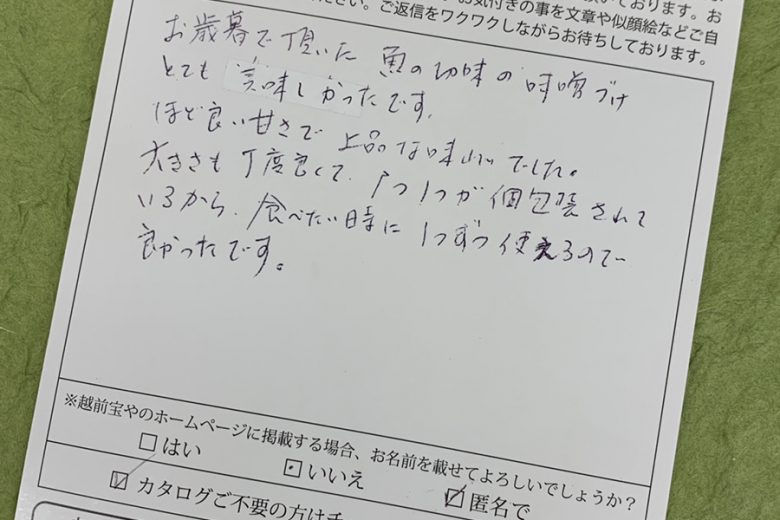 お気付きの事を文章や似顔絵などご自
ださい。ご返信をワクワクしながらお待ちしております。
お歳暮で頂いた 魚の切味の味噌づけ
とても美味しかったです。
ほど良い甘さで上品な味わいでした。
大きさも丁度良くて、1つ1つが個包装されて
いるから、食べたい時に1つずつ使えるので
良かったです。
※越前宝やのホームページに掲載する場合、お名前を載せてよろしいでしょうか?
□はい □いいえ ☑匿名で
☑カタログご不要の方は